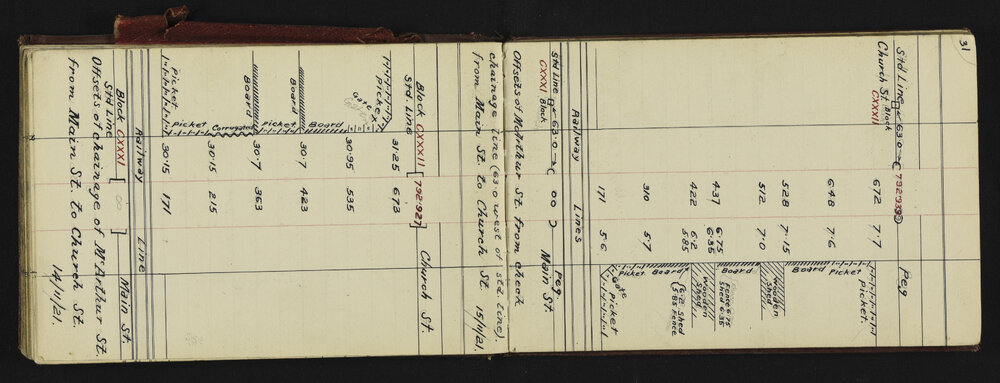 31
Std Line 63.0 792.939 Peg
Church St. Block
CXXXII
672 7.7
Picket.
648 7.6
Picket
Board
528 7.15
512 7.0
Wooden
Shed
Board
437 6.75
6.35
Fence 6.75
Shed 6.35
422 6.2
5.85
Wooden
Shed
(6.2 Shed
5.85 Fence
Board
310 5.7
Picket
171 5.6
Gate
Picket
Railway Lines
Std Line 63.0 00 Peg
CXXXI Block. Main St.
Offsets of McArthur St. from check
chainage line (63.0 west of std. line).
from Main St. to Church St. 15/11/21.
Block CXXXII
Std. Line [792.927] Church St.
31.25 673
Picket
Gate
30.95 535
Board
30.7 423
Board
Picket
30.7 363
Board
Corrugated
30.15 215
Picket
30.15 171
Picket
Railway Line
Block CXXXI
Std Line [00] Main St.
Offsets of chainage of McArthur St.
from Main St. to Church St.
14/11/21.